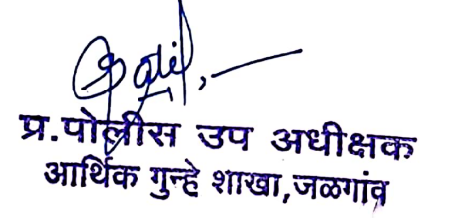 प्र.पोलीस उप अधीक्षक
आर्थिक गुन्हे शाखा,जळगांव